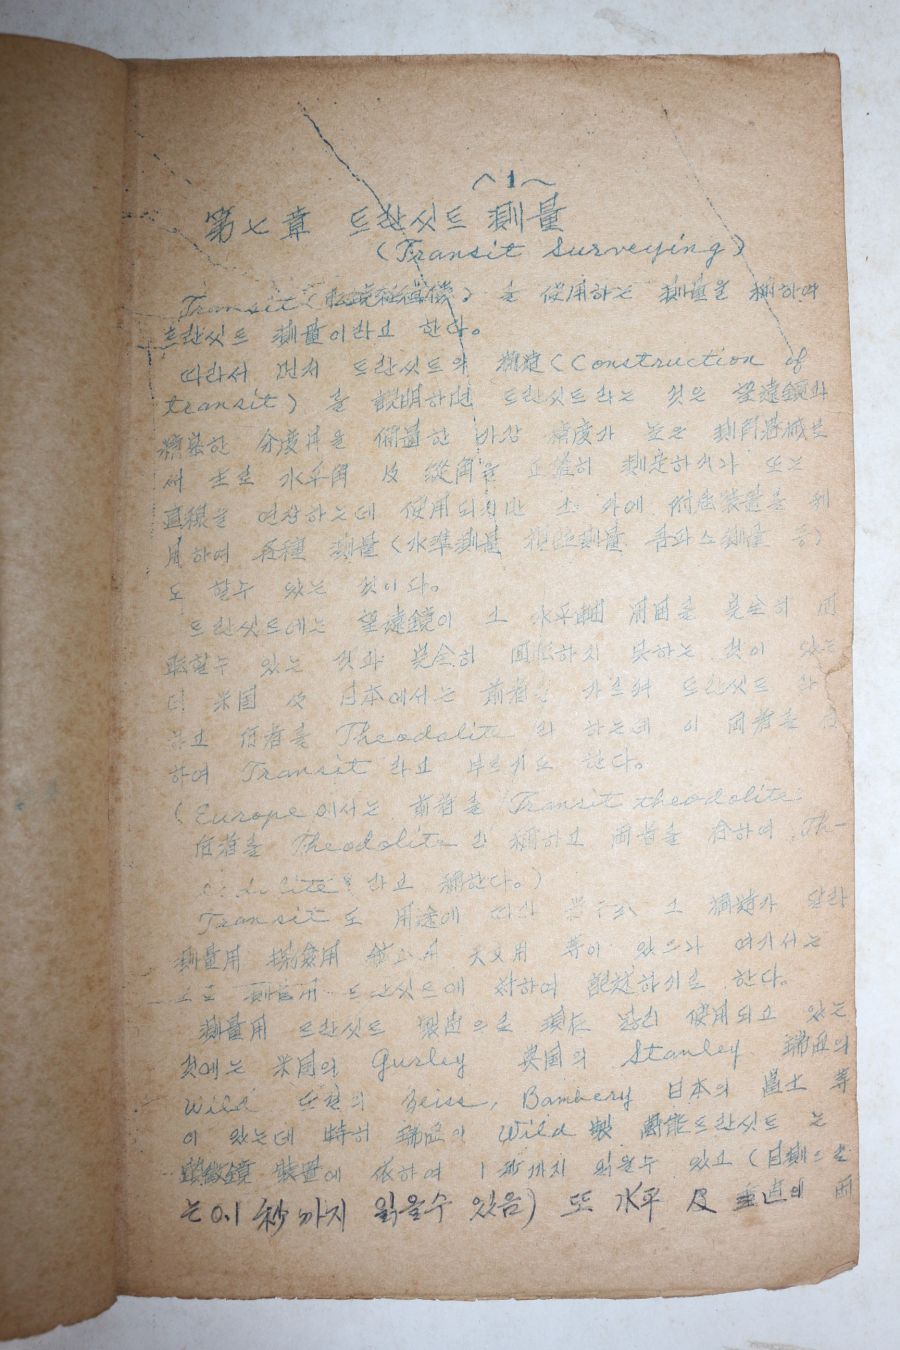 ~1~
第七章 트란싯트 測量
(Transit Surveying)
Transit ( ) 을 使用하는 測量을 稱하여
트란싯트 測量이라고 한다。
따라서 먼저 트란싯트의 構造 (Construction of
transit) 을 説明하면 트란싯트라는 것은 望遠鏡과
한 分度円을 한 精度가 높은
써 主로 水平角 及 縱角을 正確히 測定하거나 또는
直線을 연장하는데 使用되지만 그 外에 附屬装置를 利
用하여 各種 測量 (水準測量 視距測量 콤파스測量 등)
도 할수 있는 것이다。
트란싯트에는 望遠鏡이 그 水平軸 周囲를 完全히 回
転할수 있는 것과 完全히 回転하지 못하는 것이 있는
데 米国 及 日本에서는 前者를 트란싯트 라
하고 后者를 Theodolite 라 하는데 이 両者를 合
하여 Transit 라고 부르기도 한다。
(Europe 에서는 前者를 Transit theodolite
后者를 Theodolite 라 稱하고 両者를 合하여 Th-
eodolite 라고 稱한다。)
Transit 도 用途에 따라 그 構造가 달라
測量用 鉱山用 天文用 等이 있으나 여기서는
主로 測量用 트란싯트에 対하여 記述하기로 한다。
測量用 트란싯트 製造으로 現在 널리 使用되고 있는
것에는 米国의 Gurley 英国의 Stanley 瑞西의
Wild 独逸의 Zeiss, Bamberg 日本의 富士 等
이 있는데 特히 瑞西의 Wild 製 萬能트란싯트 는
顕微鏡 装置에 依하여 1秒까지 읽을수 있고 (目測으로
는 0.1 秒까지 읽을수 있음) 또 水平 及 垂直의 両